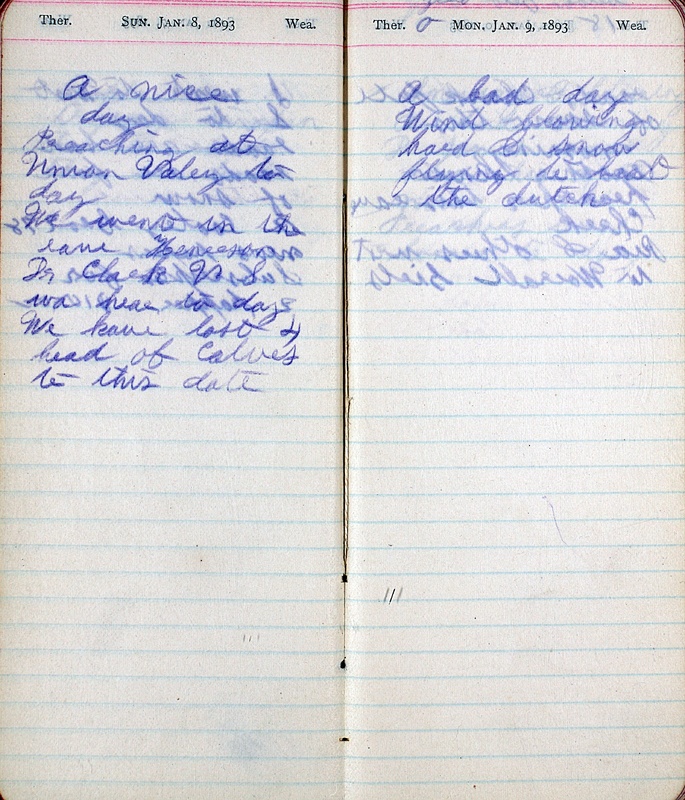 Ther. Sun. Jan. 8, 1893 Wea.
A nice
day
Preaching at
Union Valey to
day
We went in the
eave
Dr Clark
was hear to day
We have lost 4
head of Calves
to this date
Ther. 0 Mon. Jan. 9, 1893 Wea.
A bad day
Wind blowing
hard & snow
flying to beat
the dutch